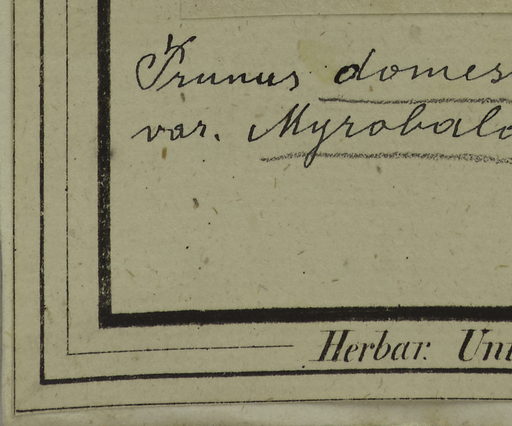 Prunus domes
var. Myrobala
Herbar. Uni